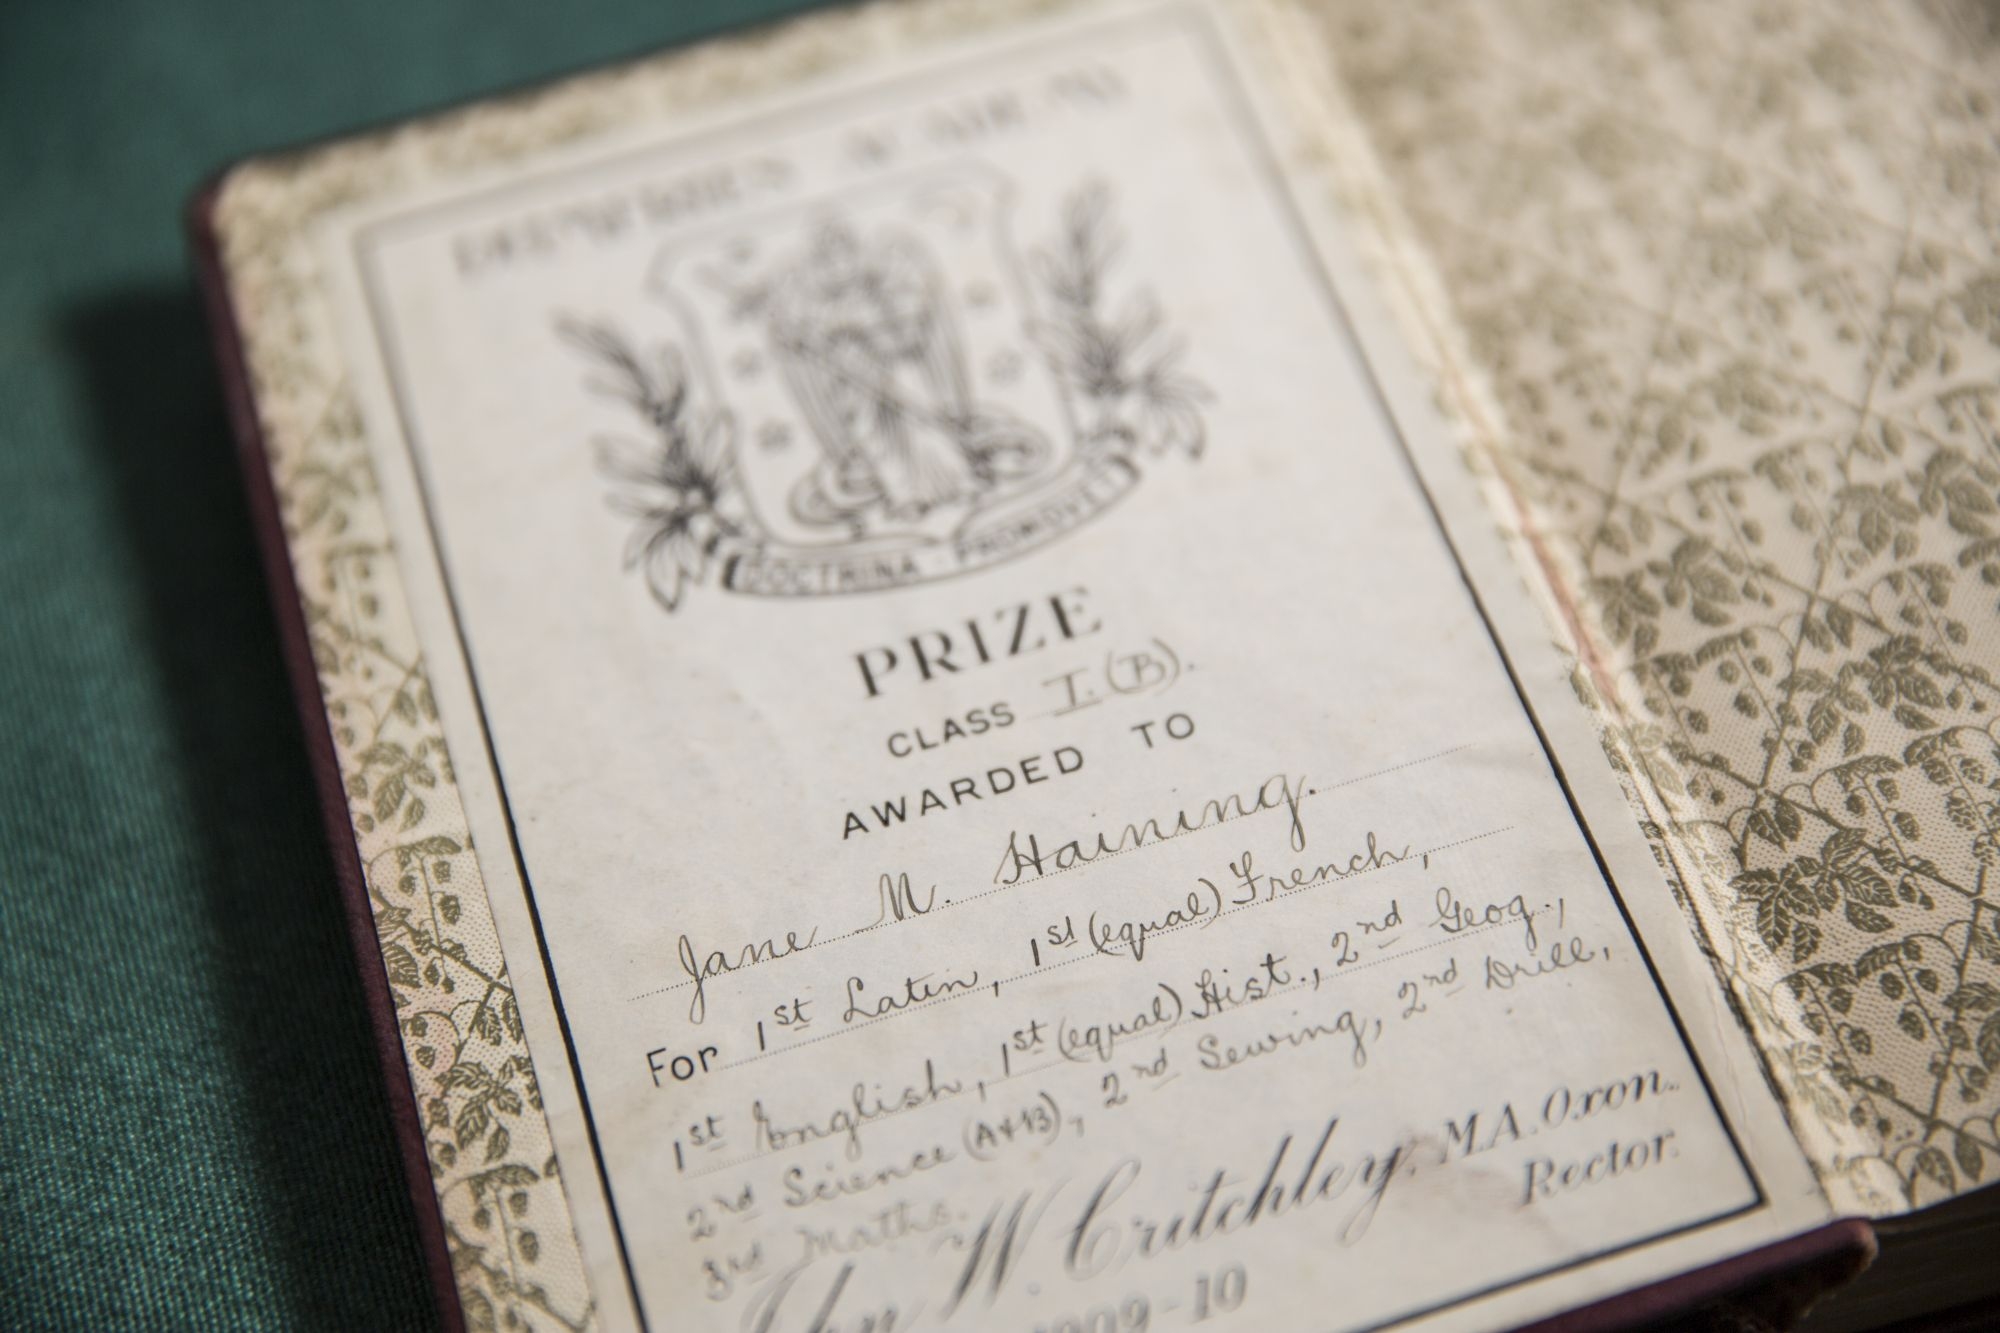 DUMFRIES ACADEMY
DOCTRINA PROMOVET
PRIZE
CLASS I.(B).
AWARDED TO
Jane M. Haining.
For 1st Latin, 1st (equal) French,
1st English, 1st (equal) Hist., 2nd Geog.,
2nd Science (A+B), 2nd Sewing, 2nd Drill,
3rd Maths.
John W. Critchley. M.A. Oxon.
Rector.
1909-10